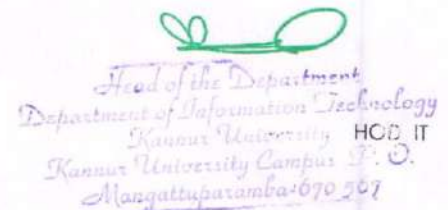 Head of the Department
Department of Information Technology
Kannur University HOD IT
Kannur University Campus P. O.
Mangattuparamba-670 567